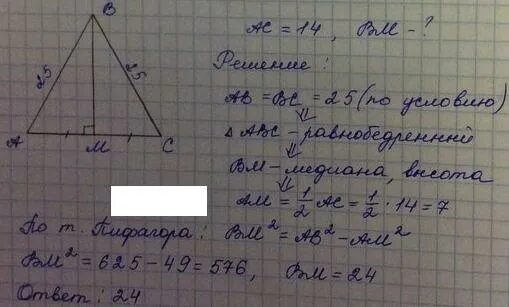 B
25
25
A
M
C
AC = 14, BM - ?
Решение:
AB = BC = 25 (по условию)
⇓
△ ABC - равнобедренний
⇓
BM - медиана, высота
⇓
AM = 1/2 AC = 1/2 · 14 = 7
По т. Пифагора: BM² = AB² - AM²
BM² = 625 - 49 = 576, BM = 24
Ответ: 24